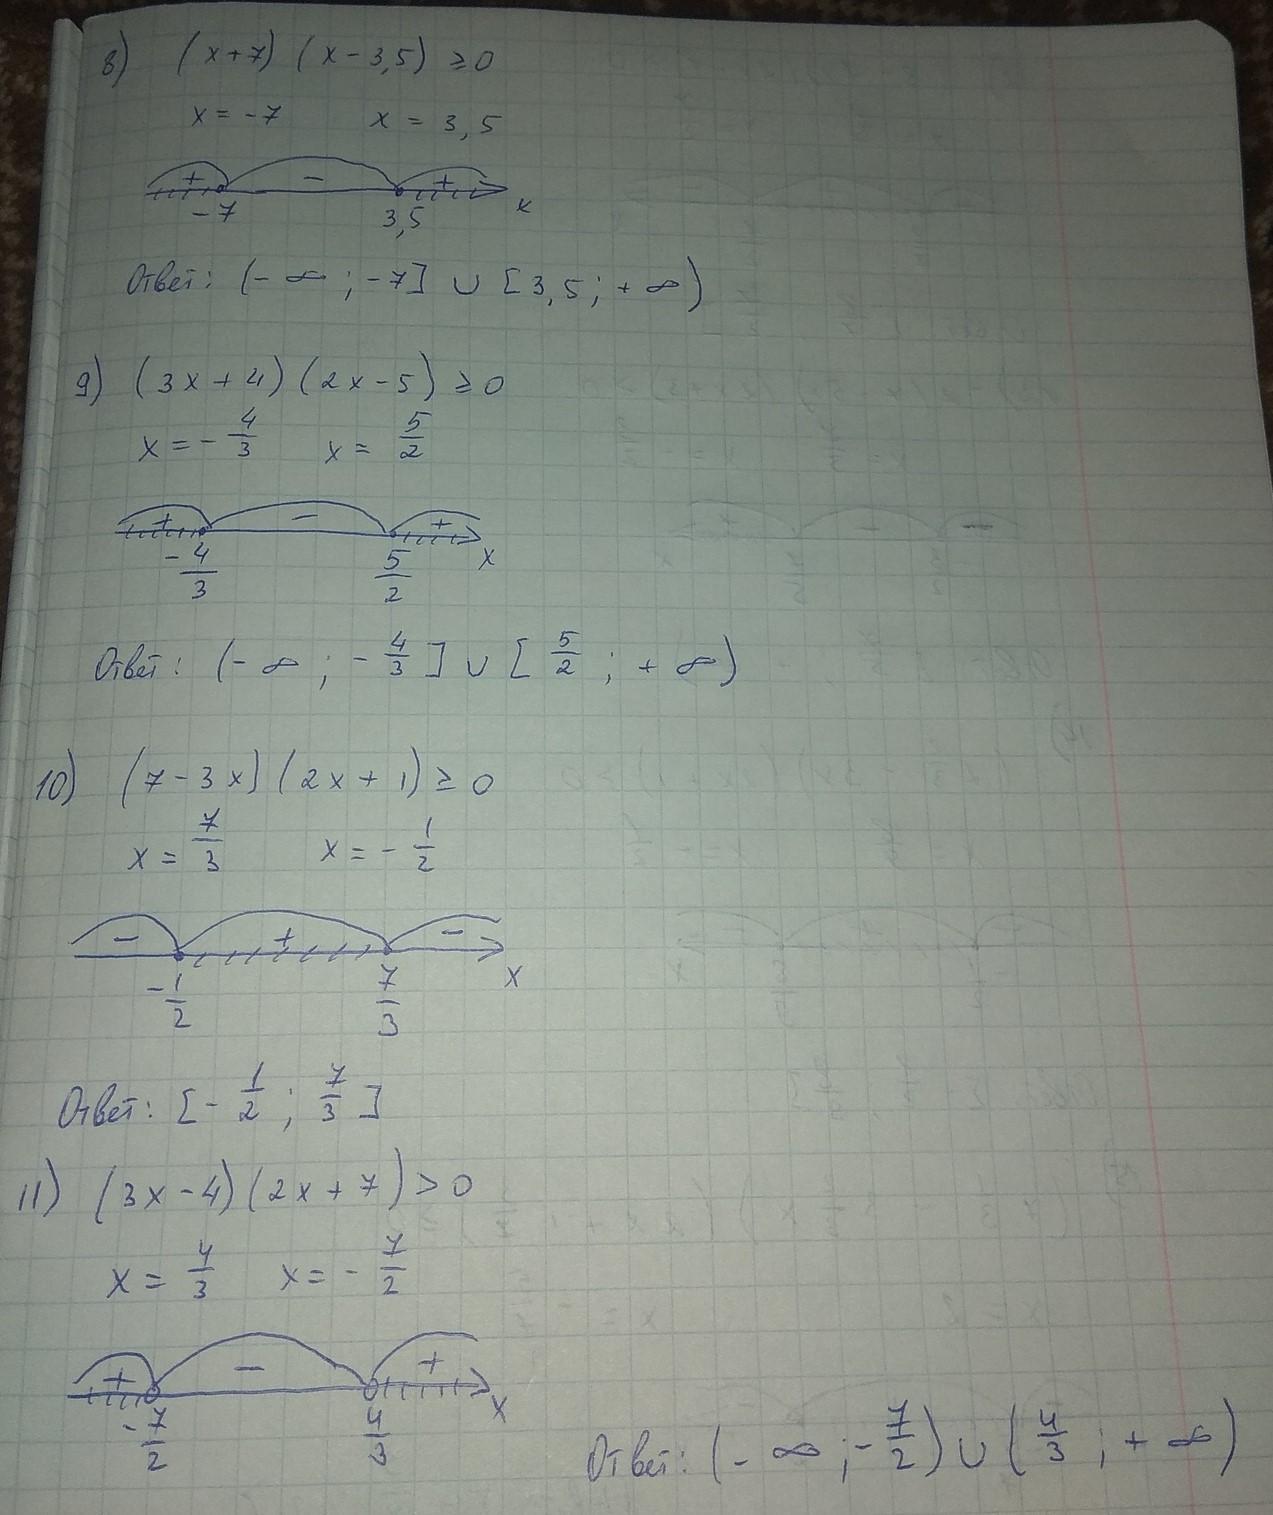 8) (x+7) (x-3,5) ≥0
x = -7 x = 3,5
+ - +
-7 3,5 x
Ответ: (-∞; -7] ∪ [3,5; +∞)
9) (3x+4) (2x-5) ≥0
x = -4/3 x = 5/2
+ - +
-4/3 5/2 x
Ответ: (-∞; -4/3] ∪ [5/2; +∞)
10) (7-3x) (2x+1) ≥ 0
x = 7/3 x = -1/2
- + -
-1/2 7/3 x
Ответ: [-1/2; 7/3]
11) (3x-4) (2x+7) > 0
x = 4/3 x = -7/2
+ - +
-7/2 4/3 x
Ответ: (-∞; -7/2) ∪ (4/3; +∞)